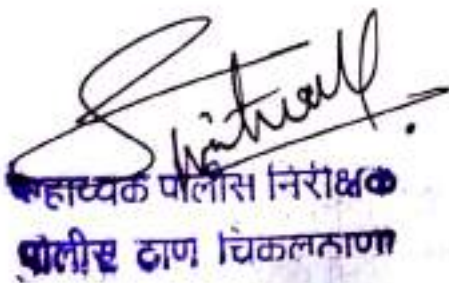 सहाय्यक पोलीस निरीक्षक
पोलीस ठाणे चिकलठाणा